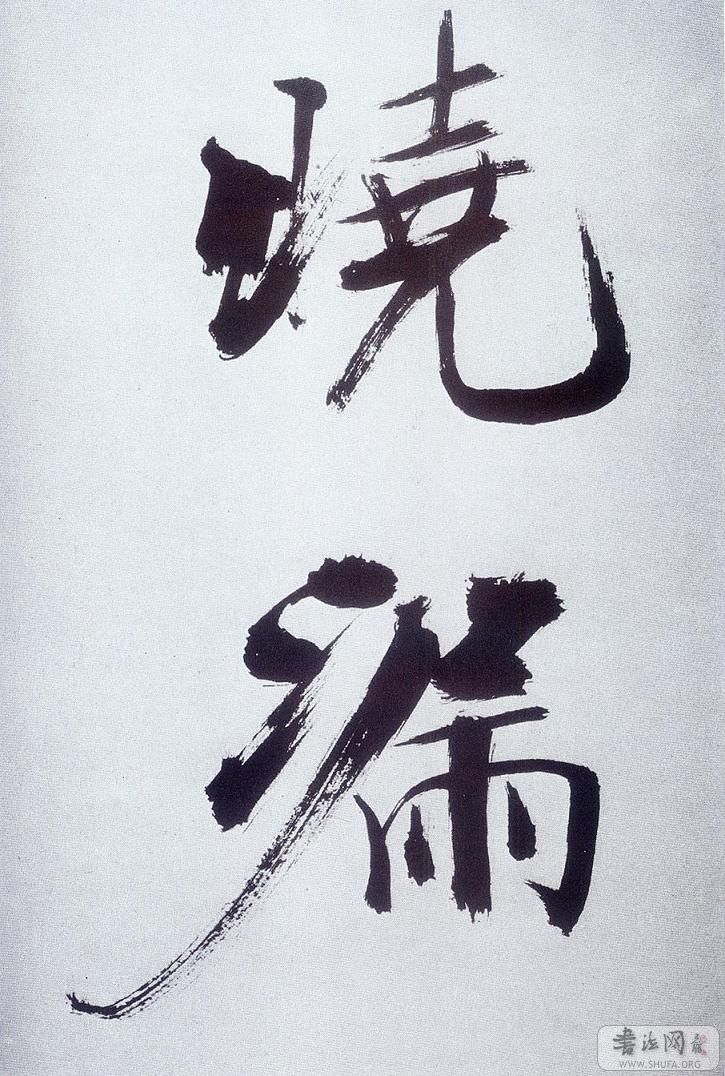 燒
猯
書法网
WWW.SHUFA.ORG